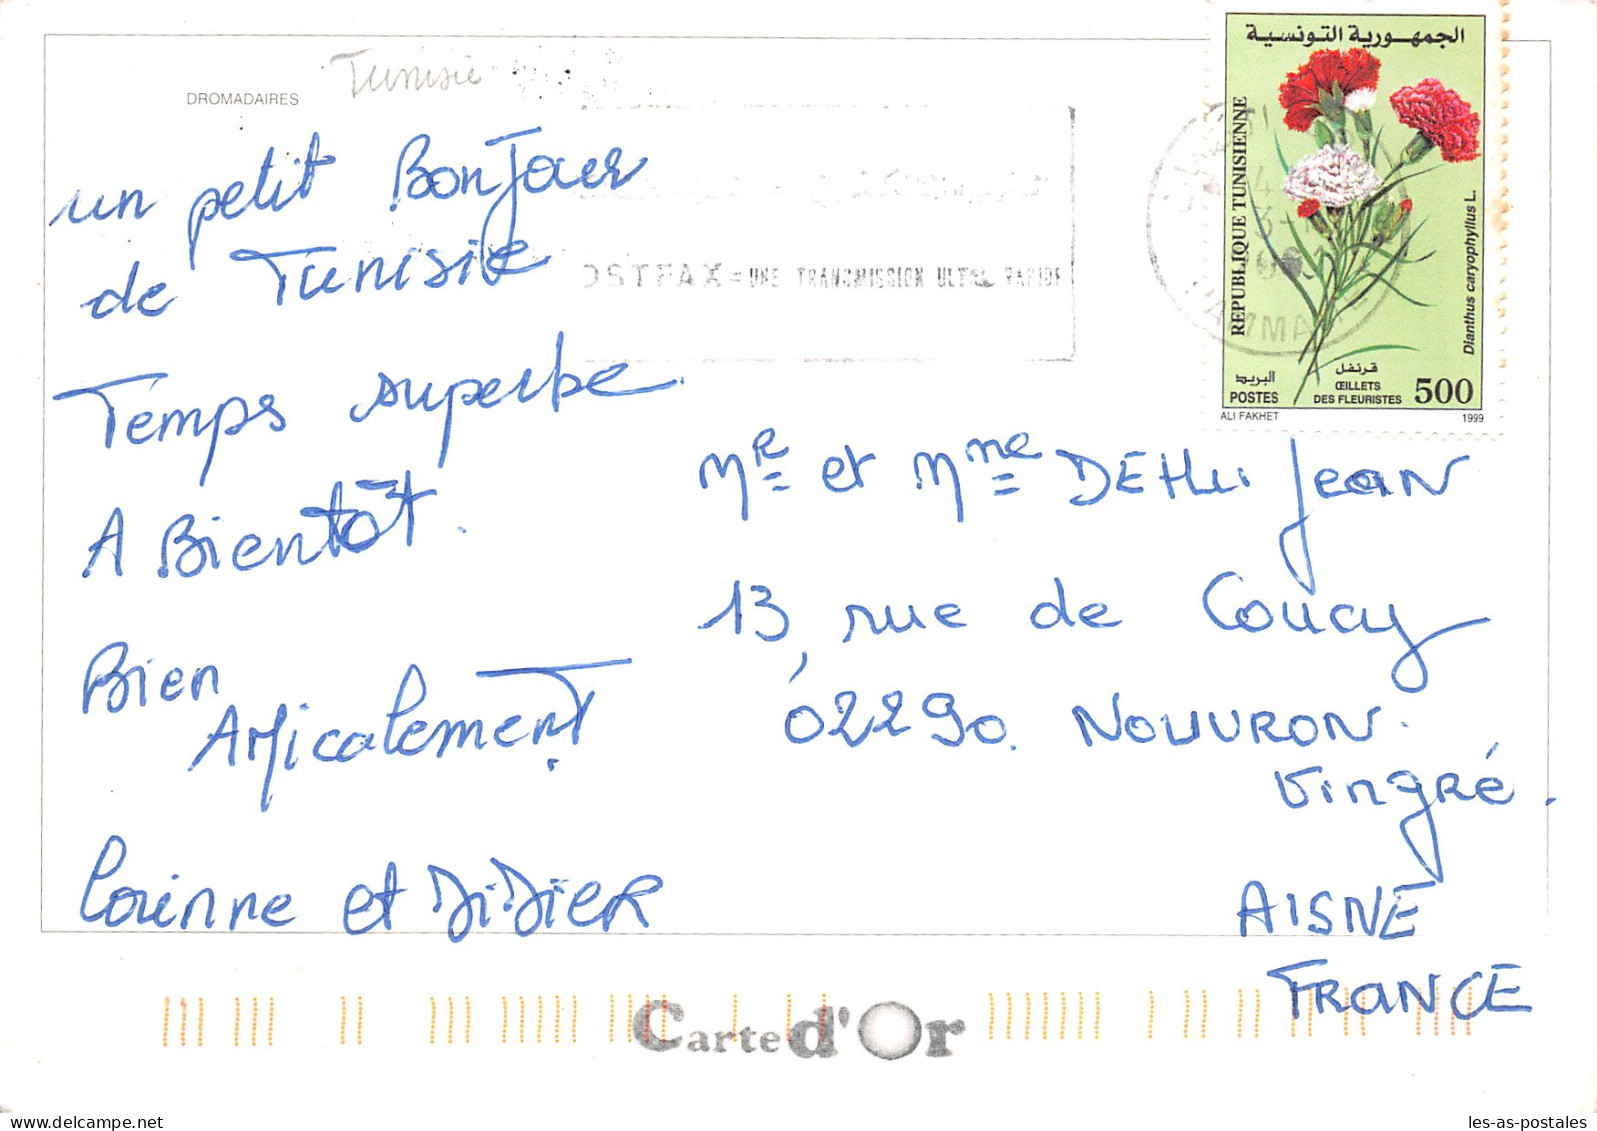 Tunisie
DROMADAIRES
un petit Bonjour
de Tunisie
Temps superbe.
A Bientôt.
Bien
Amicalement.
Corinne et DiDiER
OSTFAX = UNE TRANSMISSION ULTRA RAPIDE
HAMMA
الجمهورية التونسية
REPUBLIQUE TUNISIENNE
Dianthus caryophyllus L.
البريد
POSTES
قرنفل
ŒILLETS
DES FLEURISTES
500
ALI FAKHET
1999
Mr et Mme DEHu Jean
13, rue de Coucy
02290. NOUVRON.
Vingré.
AISNE
FRANCE
Carte d'Or
les-as-postales